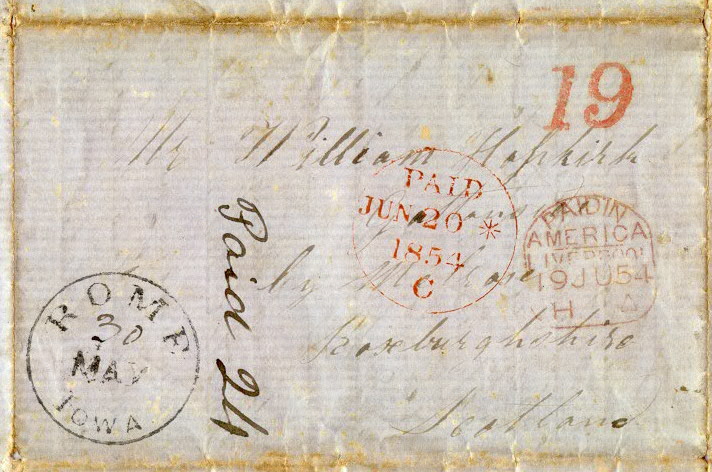 19
Mr William Hopkirk
PAID
JUN 20
1854
C
PAID IN
AMERICA
LIVERPOOL
19 JU 54
H
by Melrose
Roxburghshire
Scotland
Paid 24
ROME
30
MAY
IOWA